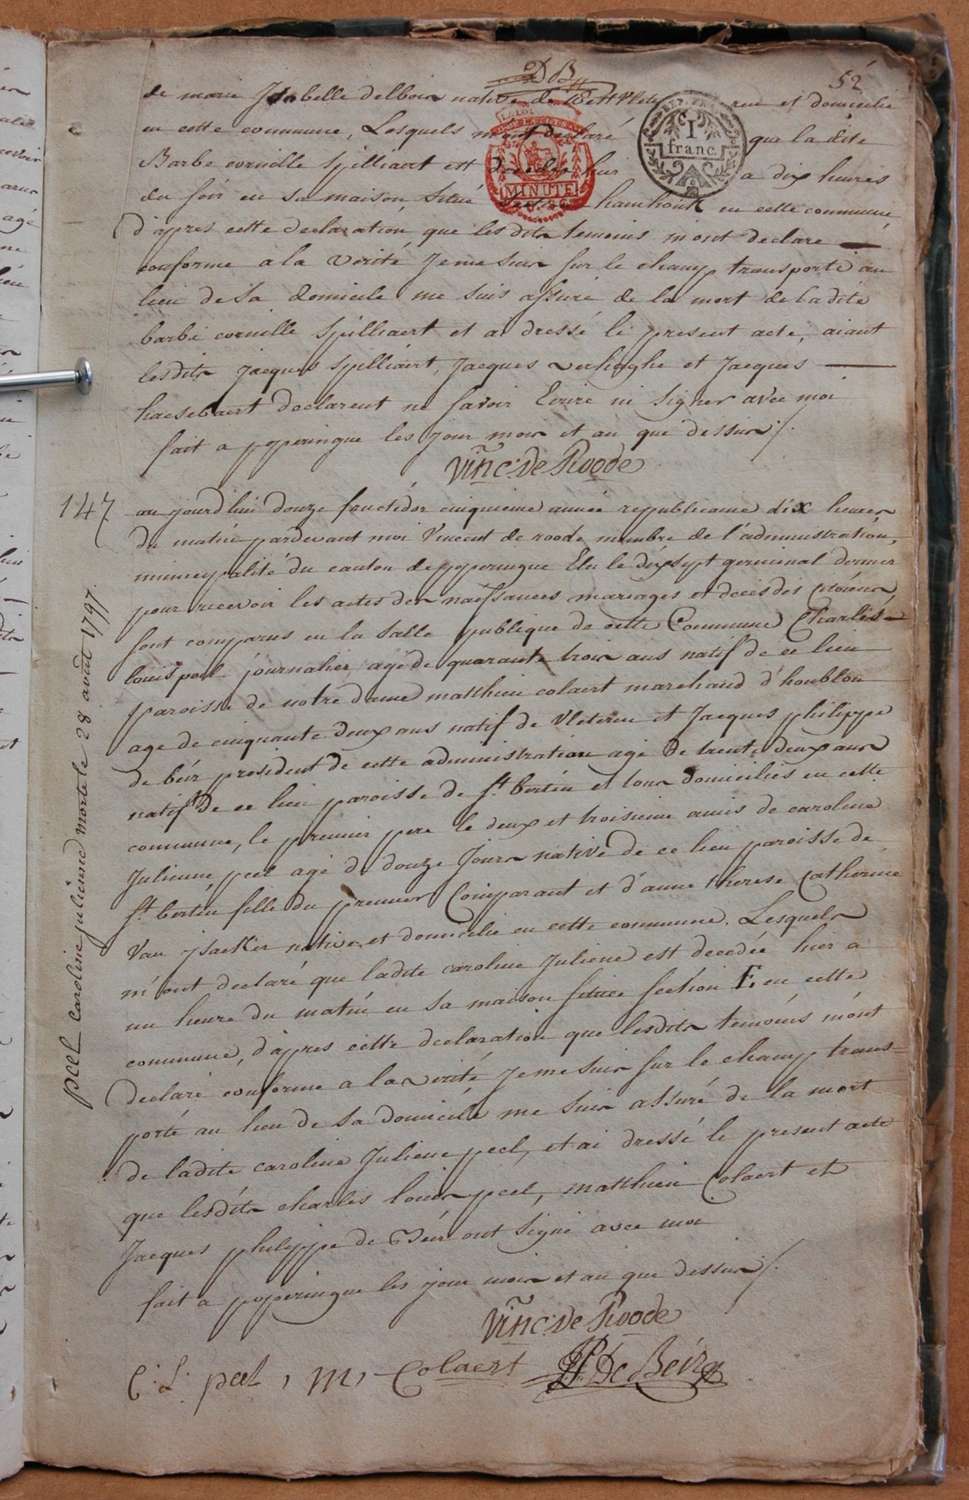 DB
52
de marie Isabelle delboir native de et domicilie
en cette commune, Lesquels m'ont declaré que la dite
Barbe corneille Spilliaert est hier a dix heures
du soir en sa maison situé hamhouk en cette commune
d'apres cette declaration que lesdits temoins m'ont declaré
conforme a la verité, Je me suis sur le champ transporté au
lieu de sa domicile, me suis assuré de la mort de ladite
barbe corneille Spilliaert et a dressé le present acte, aiant
lesdits Jacques Spilliaert, Jacques verhaghe et Jacques
haesebaert declarent ne savoir Ecrire ni signer avec moi
fait a poperingue les jour mois et an que dessus ./.
Vinc: De Roode
I franc
MINUTE
147
aujourdhui douze fructidor cinquieme année republicaine dix heures
du matin pardevant moi Vincent de roode membre de l'administration
municypalité du canton de poperingue Elu le dixsept germinal dernier
pour recevoir les actes des naissances mariages et decès des citoiens
sont comparus en la salle publique de cette Commune Charles
louis peel journalier, agé de quarante trois ans natif de ce lieu
paroisse de notre dame matthieu colaert marchand d'houblon
age de cinquante deux ans natif de Vleteren et Jacques philippe
de beir president de cette administration agé de trente deux ans
natif de ce lieu paroisse de st bertin et tous domiciliés en cette
commune, le premier pere le deux et troisieme amis de caroline
Julienne peel agé de douze Jours native de ce lieu paroisse de
st bertin fille du premier Comparant et d'anne therese Catherine
Van jsacker native et domicilie en cette commune. Lesquels
m'ont declaré que ladite caroline Juliene est decedée hier a
un heure du matin en sa maison située section F. en cette
commune, d'apres cette declaration que lesdits temoins m'ont
declaré conforme a la verité Je me suis sur le champ trans=
porté au lieu de sa domicile me suis assuré de la mort
de ladite caroline Juliene peel, et ai dressé le present acte
que lesdits charles louis peel, matthieu Colaert et
Jacques philippe de Beir ont signé avec moi
fait a poperingue les jour mois et an que dessus ./.
Vinc: De Roode
C: L: peel, M, Colaert JP De Beir
peel caroline julienne morte le 28 août 1797